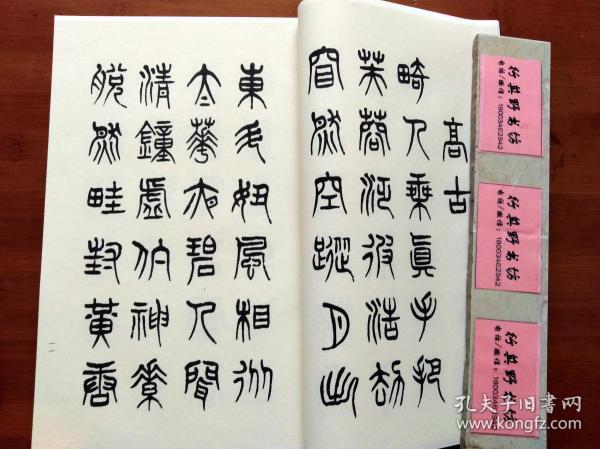 高古
畸人乘眞手把
芙蓉汎彼浩劫
窅然空蹤月出
東斗好風相從
太華夜碧人聞
清鐘虛佇神素
脫然畦封黃唐
一一
行其野书坊
电话/微信：18003462942
行其野书坊
电话/微信：18003462942
行其野书坊
电话/微信：
孔夫子旧書网
www.kongfz.com